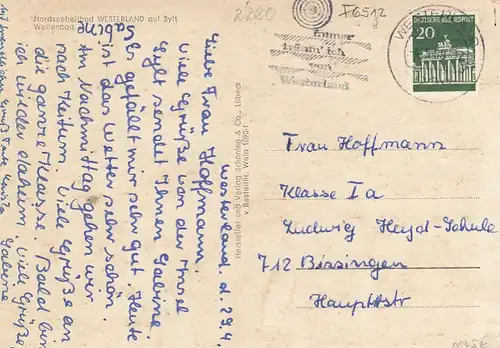 Nordseeheilbad WESTERLAND auf Sylt
Wellenbad
2280
F6512
immer
träum' ich
von
Westerland
DEUTSCHE BUNDESPOST
20
Westerland, d. 29.4.
Liebe Frau Hoffmann.
Viele Grüße von der Insel
Sylt sendet Ihnen Gabriele
Es gefällt mir sehr gut. Heute
ist das Wetter sehr schön.
Am Nachmittag gehen wir
nach Keitum. Viele Grüße an
die ganze Klasse. Bald bin
ich wieder daheim. Viele Grüße
Gabriele
Hersteller und Verlag Schöning & Co., Lübeck
Frau Hoffmann
Klasse Ia
Ludwig Heyd-Schule
712 Bissingen
Hauptstr